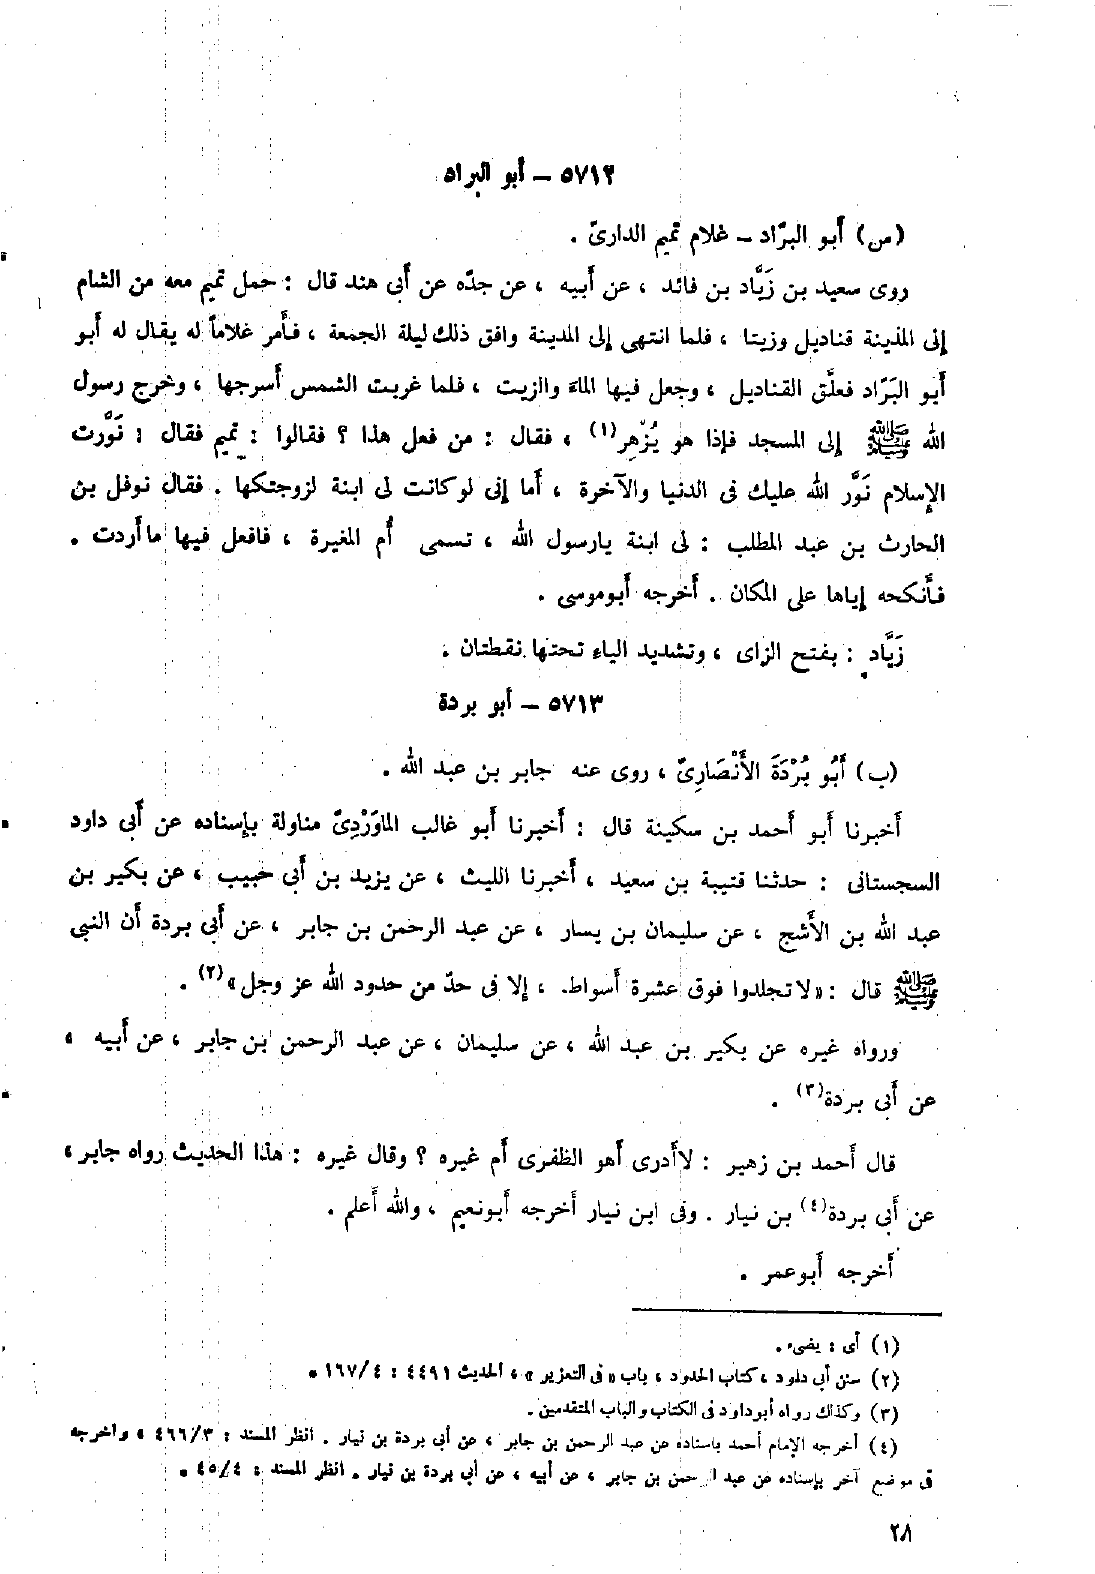 ٥٧١٢ – أبو البراد
(س) أبو البرَّاد – غلام تميم الدارىّ .
روى سعيد بن زَيَّاد بن فائد ، عن أبيه ، عن جدّه عن أبى هند قال : حمل تميم معه من الشام
إلى المدينة قناديل وزيتا ، فلما انتهى إلى المدينة وافق ذلك ليلة الجمعة ، فأمر غلاماً له يقال له أبو
أبو البَرّاد فعلَّق القناديل ، وجعل فيها الماء والزيت ، فلما غربت الشمس أسرجها ، وخرج رسول
الله ﷺ إلى المسجد فإذا هو يُزْهِر(١) ، فقال : من فعل هذا ؟ فقالوا : تميم فقال : نَوَّرت
الإسلام نَوَّر الله عليك فى الدنيا والآخرة ، أما إنى لو كانت لى ابنة لزوجتكها . فقال نوفل بن
الحارث بن عبد المطلب : لى ابنة يارسول الله ، تسمى أُم المغيرة ، فافعل فيها ما أردت .
فأنكحه إياها على المكان . أخرجه أبو موسى .
زَيَّاد : بفتح الزاى ، وتشديد الياء تحتها نقطتان .
٥٧١٣ – أبو بردة
(ب) أَبُو بُرْدَةَ الأَنْصَارِىّ ، روى عنه جابر بن عبد الله .
أخبرنا أبو أحمد بن سكينة قال : أخبرنا أبو غالب الماوَرْدِىّ مناولة بإسناده عن أبى داود
السجستانى : حدثنا قتيبة بن سعيد ، أخبرنا الليث ، عن يزيد بن أبى حبيب ، عن بكير بن
عبد الله بن الأشج ، عن سليمان بن يسار ، عن عبد الرحمن بن جابر ، عن أبى بردة أن النبى
ﷺ قال : «لا تجلدوا فوق عشرة أسواط ، إلا فى حدّ من حدود الله عز وجل»(٢) .
ورواه غيره عن بكير بن عبد الله ، عن سليمان ، عن عبد الرحمن بن جابر ، عن أبيه ،
عن أبى بردة(٣) .
قال أحمد بن زهير : لا أدرى أهو الظفرى أم غيره ؟ وقال غيره : هذا الحديث رواه جابر ،
عن أبى بردة(٤) بن نيار . وفى ابن نيار أخرجه أبو نعيم ، والله أعلم .
أخرجه أبو عمر .
(١) أى : يضىء .
(٢) سنن أبى داود ، كتاب الحدود ، باب «فى التعزير» ، الحديث ٤٤٩١ : ١٦٧/٤ .
(٣) وكذلك رواه أبو داود فى الكتاب والباب المتقدمين .
(٤) أخرجه الإمام أحمد بإسناده عن عبد الرحمن بن جابر ، عن أبى بردة بن نيار . انظر المسند : ٤٦٦/٣ ، وأخرجه
فى موضع آخر بإسناده عن عبد الرحمن بن جابر ، عن أبيه ، عن أبى بردة بن نيار . انظر المسند : ٤٥/٤ .
٢٨